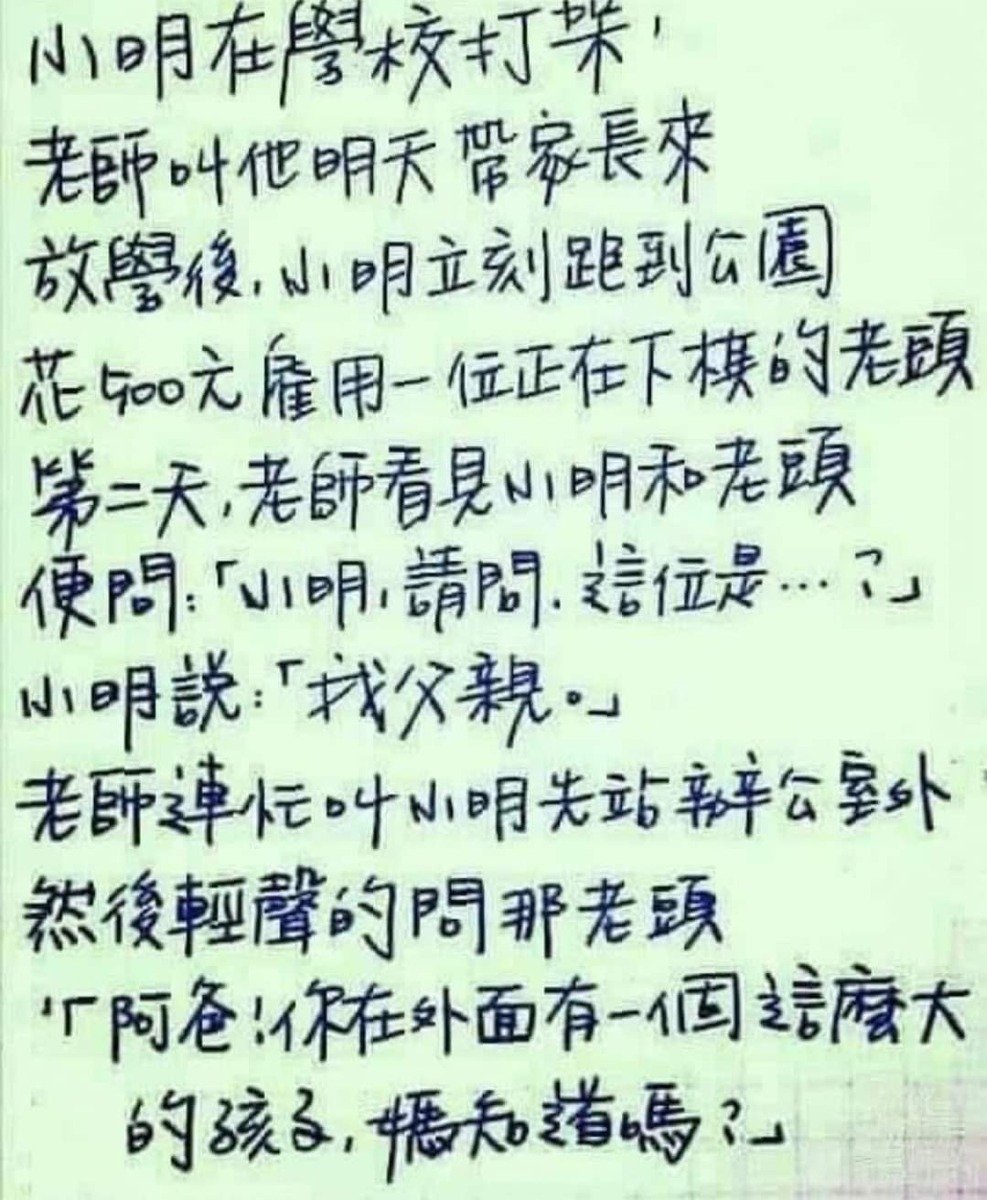 小明在學校打架，
老師叫他明天帶家長來
放學後，小明立刻跑到公園
花500元雇用一位正在下棋的老頭
第二天，老師看見小明和老頭
便問：「小明，請問，這位是…？」
小明說：「我父親。」
老師連忙叫小明先站辦公室外
然後輕聲的問那老頭
「阿爸！你在外面有一個這麼大
的孩子，媽知道嗎？」